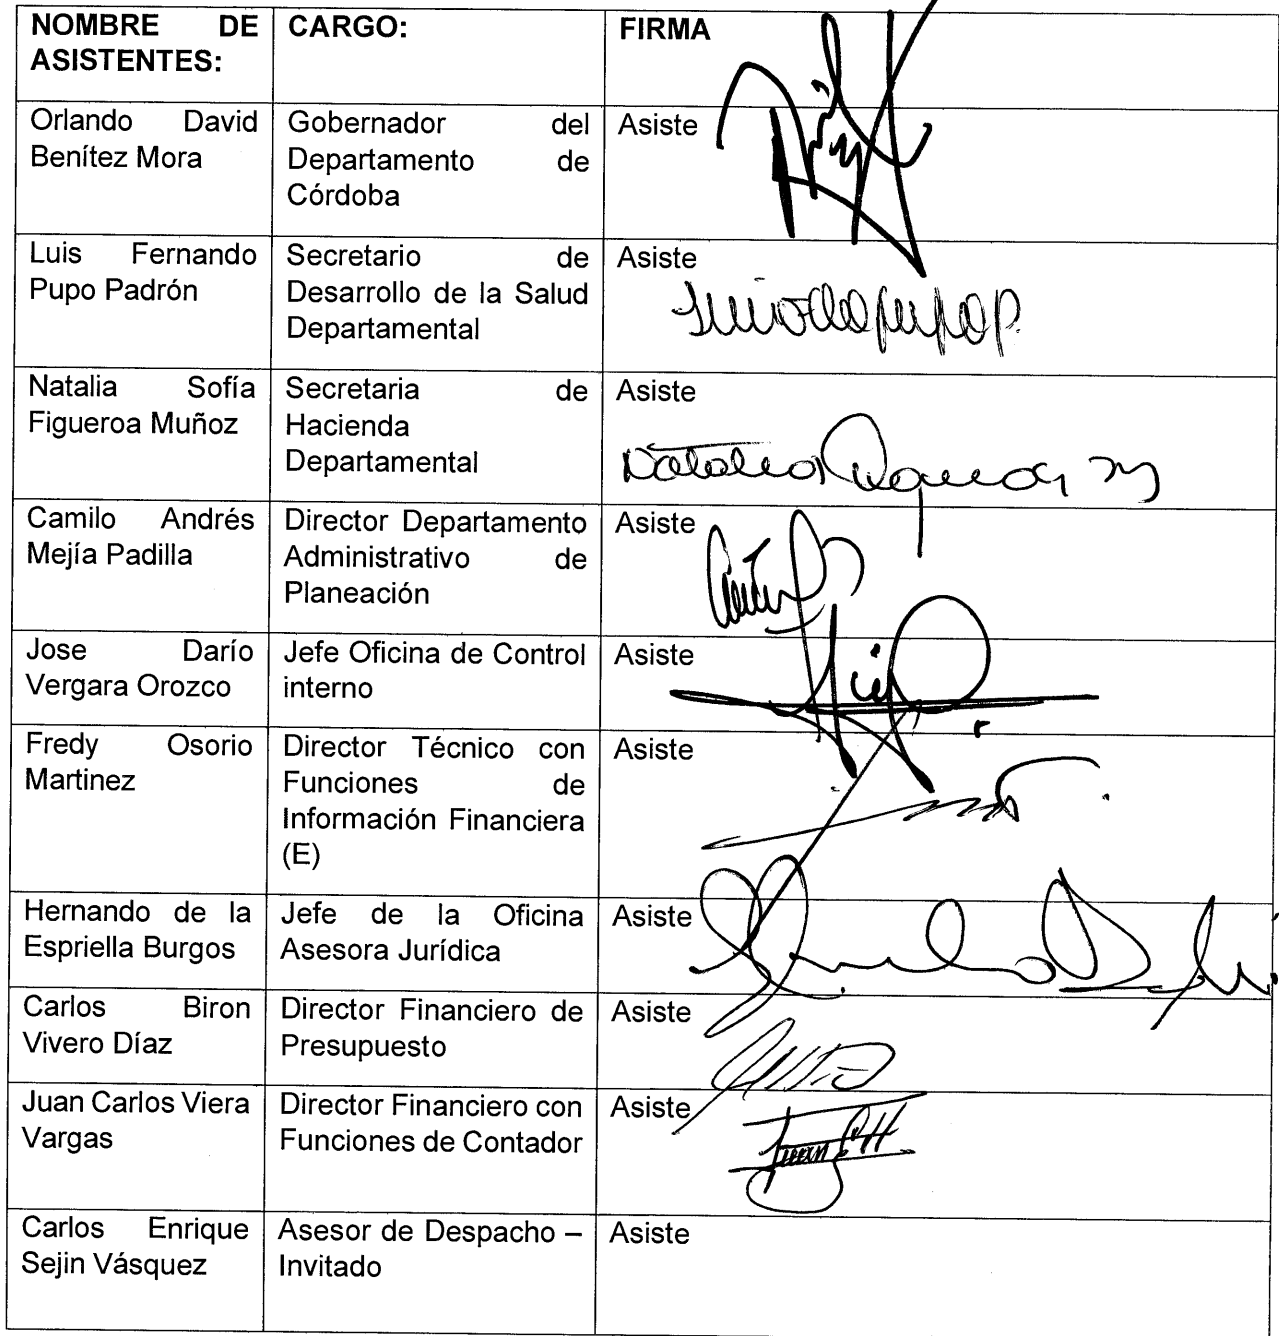 NOMBRE DE
ASISTENTES:
CARGO:
FIRMA
Orlando David
Benítez Mora
Gobernador del
Departamento de
Córdoba
Asiste
Luis Fernando
Pupo Padrón
Secretario de
Desarrollo de la Salud
Departamental
Asiste
Natalia Sofía
Figueroa Muñoz
Secretaria de
Hacienda
Departamental
Asiste
Natalia Figueroa M
Camilo Andrés
Mejía Padilla
Director Departamento
Administrativo de
Planeación
Asiste
Jose Darío
Vergara Orozco
Jefe Oficina de Control
interno
Asiste
Fredy Osorio
Martinez
Director Técnico con
Funciones de
Información Financiera
(E)
Asiste
Hernando de la
Espriella Burgos
Jefe de la Oficina
Asesora Jurídica
Asiste
Carlos Biron
Vivero Díaz
Director Financiero de
Presupuesto
Asiste
Juan Carlos Viera
Vargas
Director Financiero con
Funciones de Contador
Asiste
Juan
Carlos Enrique
Sejin Vásquez
Asesor de Despacho –
Invitado
Asiste